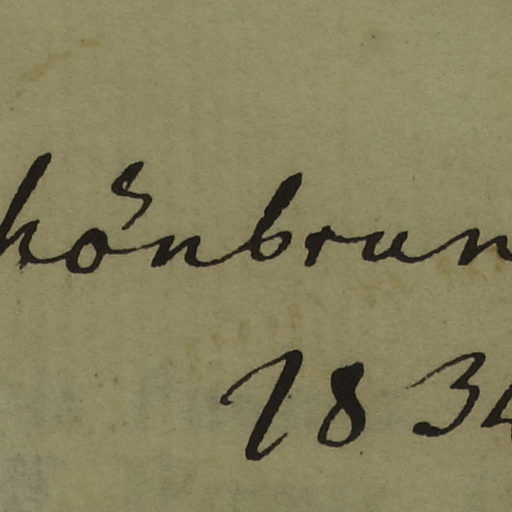 hönbrun
1834